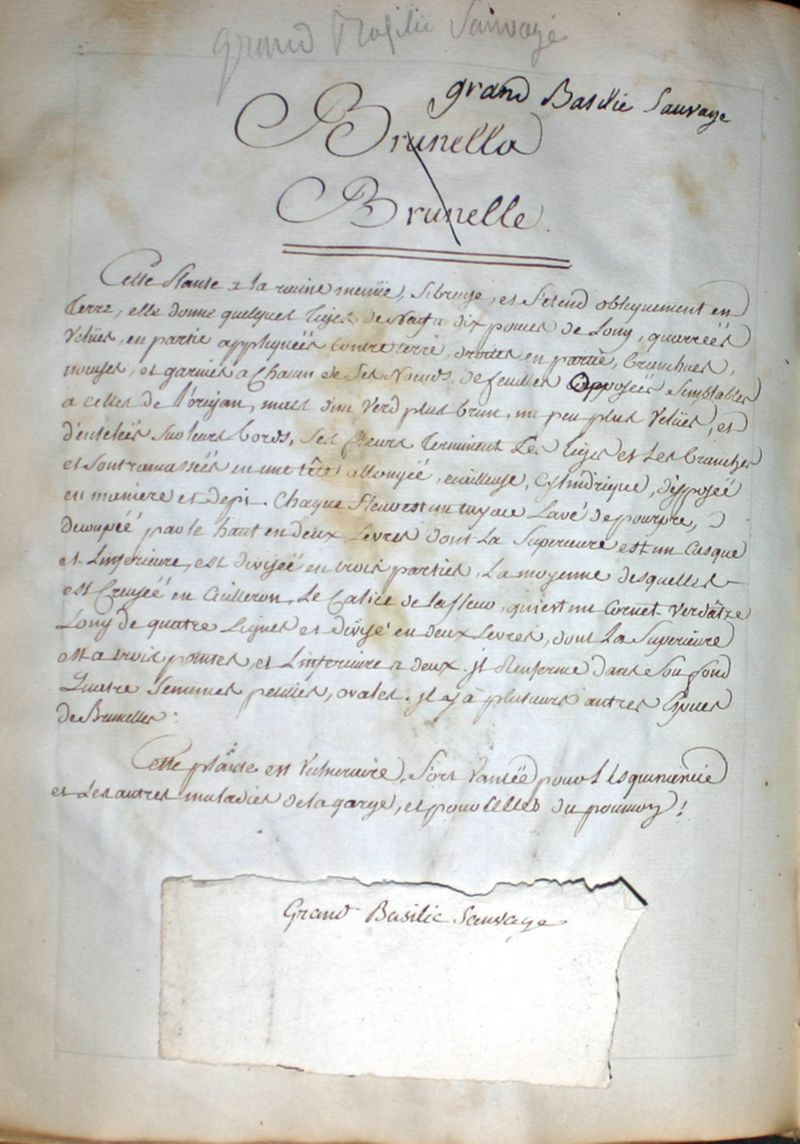 grand Basilic Sauvage
grand Basilic Sauvage
Brunella
Brunelle.
Cette Plante a la racine menüe, fibreuse, et s'etend obliquement en
Terre, elle donne quelques tiges de Neuf a dix pouces de Long, quarreés
Velües, en partie appliqueés Contre terre, droites en partie, branchues,
noueuses, et garnies a Chacun de Ses Nœuds de feuilles Opposeés Semblables
a celles de l'origan, mais d'un Verd plus brun, un peu plus Velües, et
d'enteleés Sur leurs bords, Ses fleurs Terminent Les tiges et Les branches
et Sont ramasseés en une tête allongeé, ecailleuse, Cylindrique, disposeé
en maniere et d'epi. Chaque fleur est un tuyau Lavé de pourpre,
decoupeé par le haut en deux Levres dont La Superieure est un Casque
et L'inferieure, est diviseé en trois parties, La moyenne desquelles
est Creuseé en Cuilleron, Le Calice de la fleur, qui est un Cornet Verdâtre
Long de quatre Lignes et divisé en deux Levres, dont La Superieure
est a trois pointes, et L'inferieure a deux. il Renferme dans Son fond
Quatre Semences petites, ovales. il y à plusieurs autres Especes
de Brunelles.
Cette plante est Vulneraire, fort Vanteé pour L'esquinancie
et Les autres maladies de la gorge, et pour Celles du poumon!
Grand Basilic Sauvage